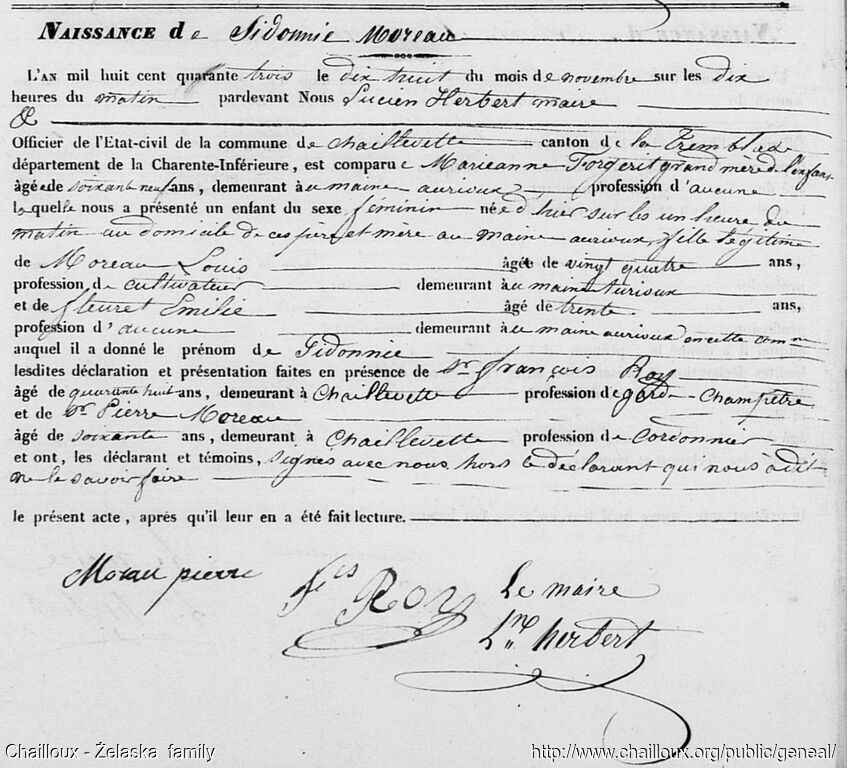 NAISSANCE de Sidonnie Moreau
L'AN mil huit cent quarante trois le dix huit du mois de novembre sur les dix
heures du matin pardevant Nous Lucien Herbert maire
Officier de l'Etat-civil de la commune de Chaillevette canton de la Tremblade
département de la Charente-Inférieure, est comparue Marieanne Forgerit grand mère de l'enfant
âgée de soixante neuf ans, demeurant à au maine aurioux profession d'aucune
laquelle nous a présenté un enfant du sexe féminin née d'hier sur les un heure du
matin au domicile de ces pere et mere au maine aurioux, fille légitime
de Moreau Louis âgée de vingt quatre ans,
profession de cultivateur demeurant à au maine aurioux
et de fleuret Emilie âgé de trente ans,
profession d'aucune demeurant à au maine aurioux en cette comne
auquel il a donné le prénom de Sidonnie
lesdites déclaration et présentation faites en présence de Sr françois Roy
âgé de quarante huit ans, demeurant à Chaillevette profession de garde-Champêtre
et de Sr Pierre Moreau
âgé de soixante ans, demeurant à Chaillevette profession de Cordonnier
et ont, les déclarant et témoins, signés avec nous, hors le déclarant qui nous à dit
ne le savoir faire
le présent acte, après qu'il leur en a été fait lecture.
Morau pierre
fcs Roy
Le maire
Ln herbert
Chailloux - Żelaska family http://www.chailloux.org/public/geneal/